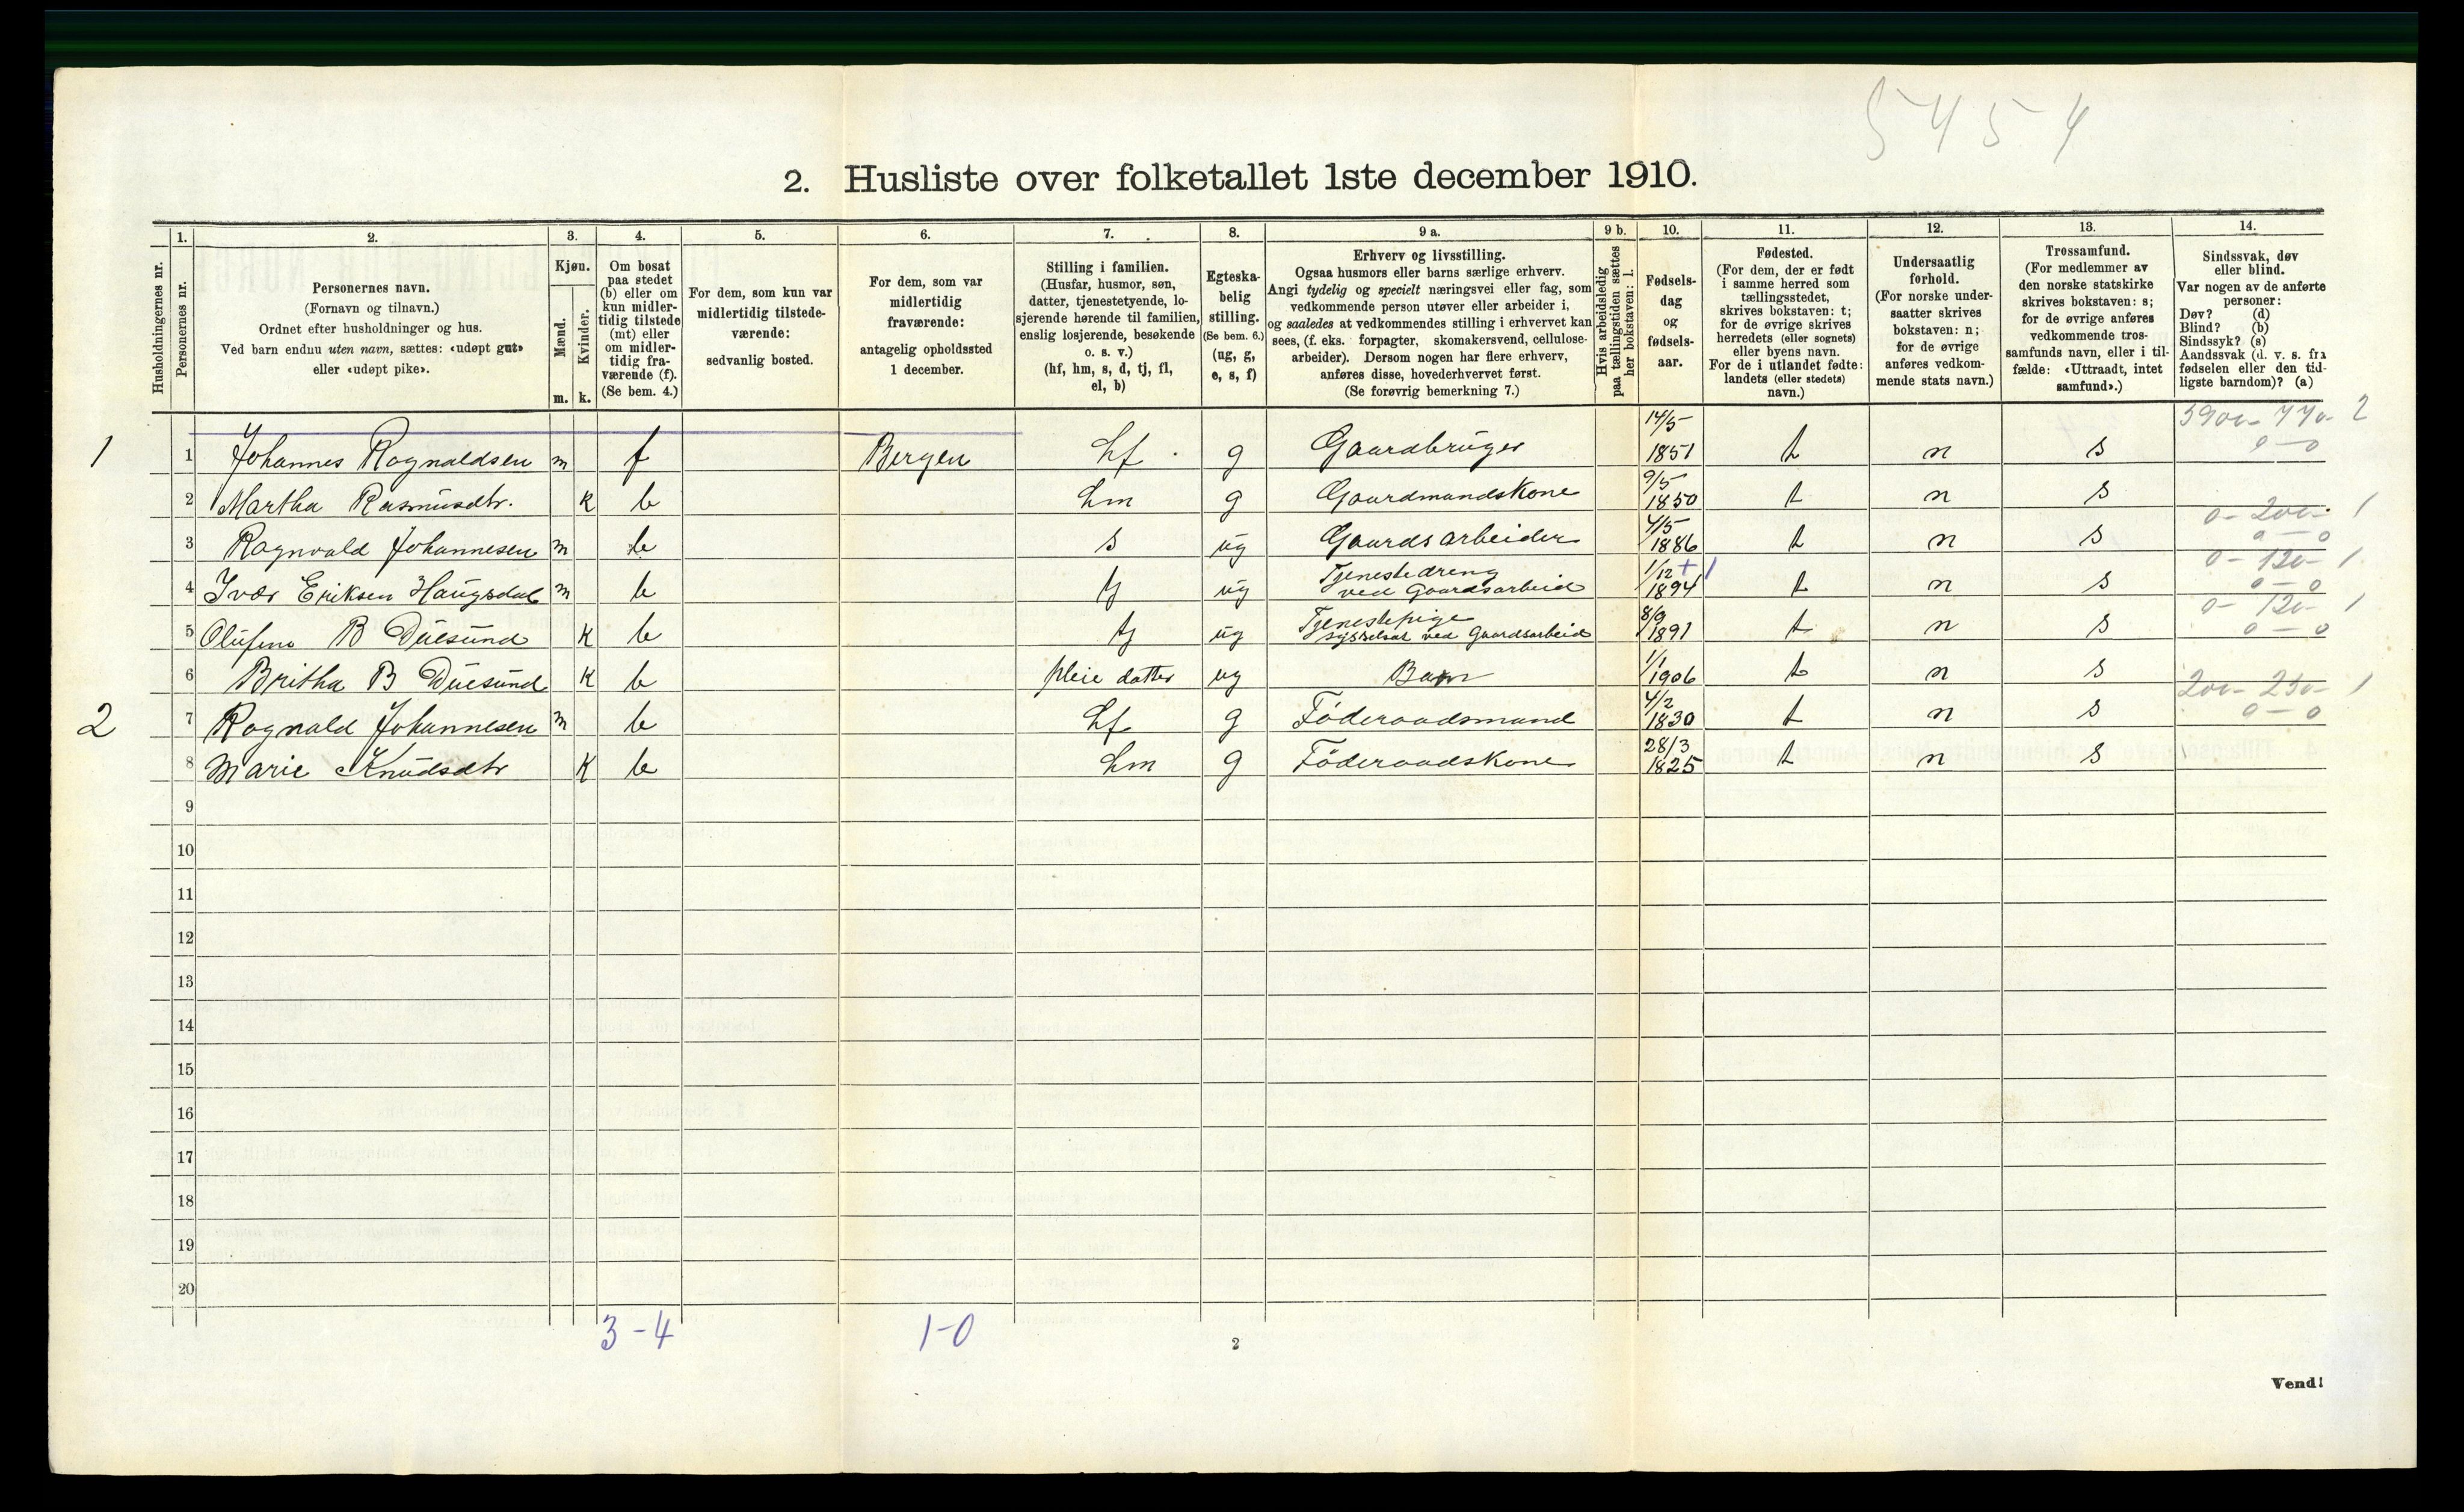 5454
2. Husliste over folketallet 1ste december 1910.
Husholdningernes nr.
1.
Personernes nr.
2.
Personernes navn.
(Fornavn og tilnavn.)
Ordnet efter husholdninger og hus.
Ved barn endnu uten navn, sættes: «udøpt gut»
eller «udøpt pike».
3.
Kjøn.
Mænd.
Kvinder.
m. k.
4.
Om bosat
paa stedet
(b) eller om
kun midler-
tidig tilstede
(mt) eller
om midler-
tidig fra-
værende (f).
(Se bem. 4.)
5.
For dem, som kun var
midlertidig tilstede-
værende:
sedvanlig bosted.
6.
For dem, som var
midlertidig
fraværende:
antagelig opholdssted
1 december.
7.
Stilling i familien.
(Husfar, husmor, søn,
datter, tjenestetyende, lo-
sjerende hørende til familien,
enslig losjerende, besøkende
o. s. v.)
(hf, hm, s, d, tj, fl,
el, b)
8.
Egteska-
belig
stilling.
(Se bem. 6.)
(ug, g,
e, s, f)
9 a.
Erhverv og livsstilling.
Ogsaa husmors eller barns særlige erhverv.
Angi tydelig og specielt næringsvei eller fag, som
vedkommende person utøver eller arbeider i,
og saaledes at vedkommendes stilling i erhvervet kan
sees, (f. eks. forpagter, skomakersvend, cellulose-
arbeider). Dersom nogen har flere erhverv,
anføres disse, hovederhvervet først.
(Se forøvrig bemerkning 7.)
9 b.
Hvis arbeidsledig
paa tællingstiden sættes
her bokstaven: l.
10.
Fødsels-
dag
og
fødsels-
aar.
11.
Fødested.
(For dem, der er født
i samme herred som
tællingsstedet,
skrives bokstaven: t;
for de øvrige skrives
herredets (eller sognets)
eller byens navn.
For de i utlandet fødte:
landets (eller stedets)
navn.)
12.
Undersaatlig
forhold.
(For norske under-
saatter skrives
bokstaven: n;
for de øvrige
anføres vedkom-
mende stats navn.)
13.
Trossamfund.
(For medlemmer av
den norske statskirke
skrives bokstaven: s;
for de øvrige anføres
vedkommende tros-
samfunds navn, eller i til-
fælde: «Uttraadt, intet
samfund».)
14.
Sindssvak, døv
eller blind.
Var nogen av de anførte
personer:
Døv? (d)
Blind? (b)
Sindssyk? (s)
Aandssvak (d. v. s. fra
fødselen eller den tid-
ligste barndom)? (a)
1 1 Johannes Rognaldsen m f Bergen hf g Gaardbruger 14/5 1851 t n s 0-0
2 Martha Rasmusdtr. k b hm g Gaardmandskone 9/5 1850 t n s
3 Rognvald Johannesen m b s ug Gaardsarbeider 4/5 1886 t n s 0-200- 1 0-0
4 Ivar Eriksen Haugsdal m b tj ug Tjenestedreng ved Gaardsarbeid 1/12 1894 t n s 0-120- 1 0-0
5 Olufine B Duesund k b tj ug Tjenestepige sysselsat ved Gaardsarbeid 8/9 1891 t n s 0-120- 1 0-0
6 Britha B Duesund k b pleie datter ug Barn 1/1 1906 t n s
2 7 Rognald Johannesen m b hf g Föderaadsmand 4/2 1830 t n s 200-250- 1 0-0
8 Marie Knudsdtr k b hm g Föderaadskone 28/3 1825 t n s
9
10
11
12
13
14
15
16
17
18
19
20
3-4 1-0
2
Vend!